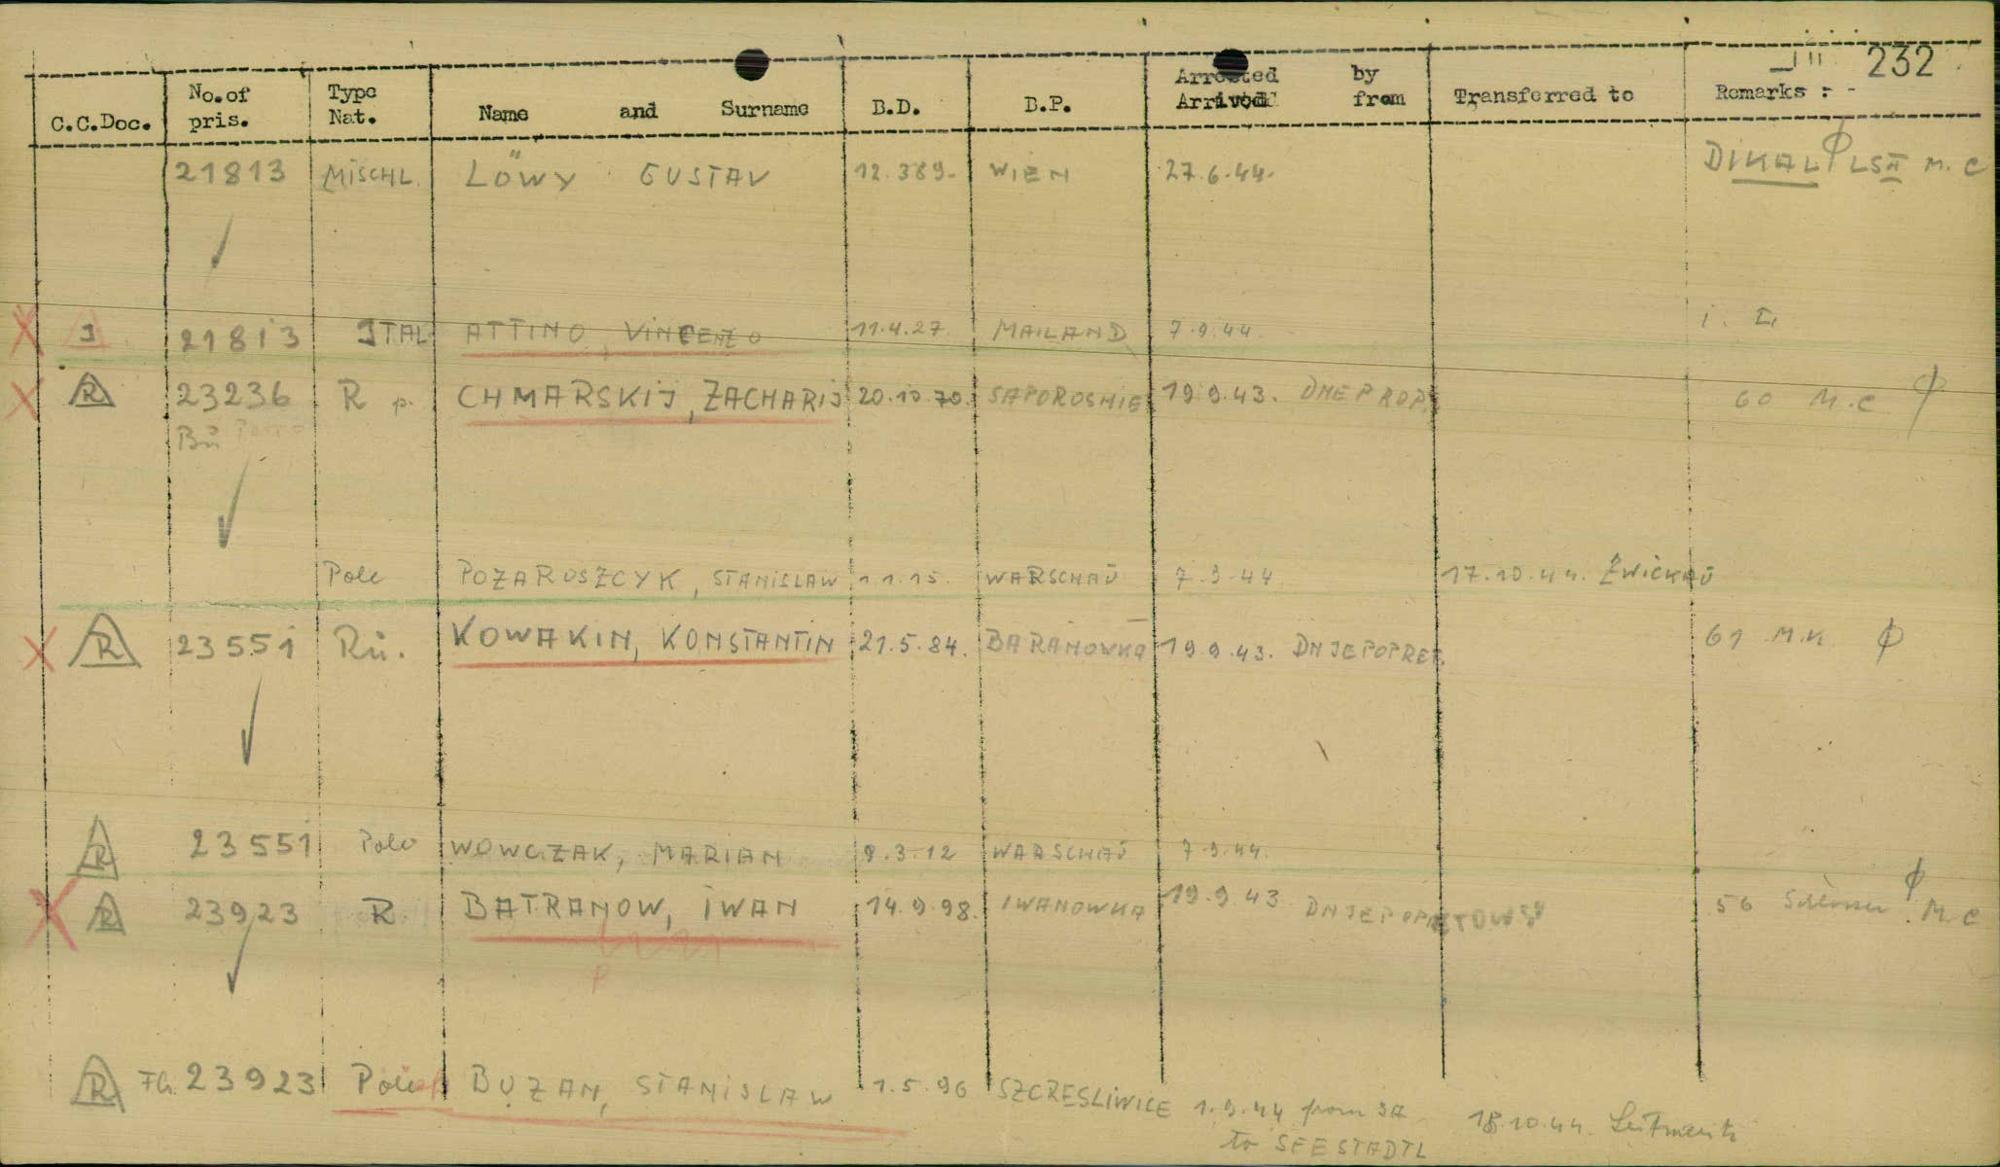 232
C.C.Doc. No.of pris. Type Nat. Name and Surname B.D. B.P. Arrested by Arrived from Transferred to Remarks : -
21813 MISCHL. LÖWY GUSTAV 12.389. WIEN 27.6.44. DIKAL M.C
J 21813 ITAL ATTINO, VINCENZO 11.4.27. MAILAND 7.9.44
R 23236 R p. CHMARSKIJ, ZACHARIJ 20.10.70. SAPOROSHIE 19.9.43. DNEPROP. 60 M.C
Bu
Pole POZAROSZCYK, STANISLAW 1 1.15. WARSCHAU 7.9.44 17.10.44. ZWICKAU
R 23551 Ru. KOWAKIN, KONSTANTIN 21.5.84. BARANOWKA 19.9.43. DNJEPOPRET. 61 M.K
R 23551 Pole WOWCZAK, MARIAN 9.3.12 WARSCHAU 7.9.44.
R 23923 R BATRANOW, IWAN 14.9.98. IWANOWKA 19.9.43 56 M.C
R Fl. 23923 Pole BUZAN, STANISLAW 1.5.96 SZCRESLIWICE 1.9.44 from SA 18.10.44. Leitmeritz
to SEESTADTL